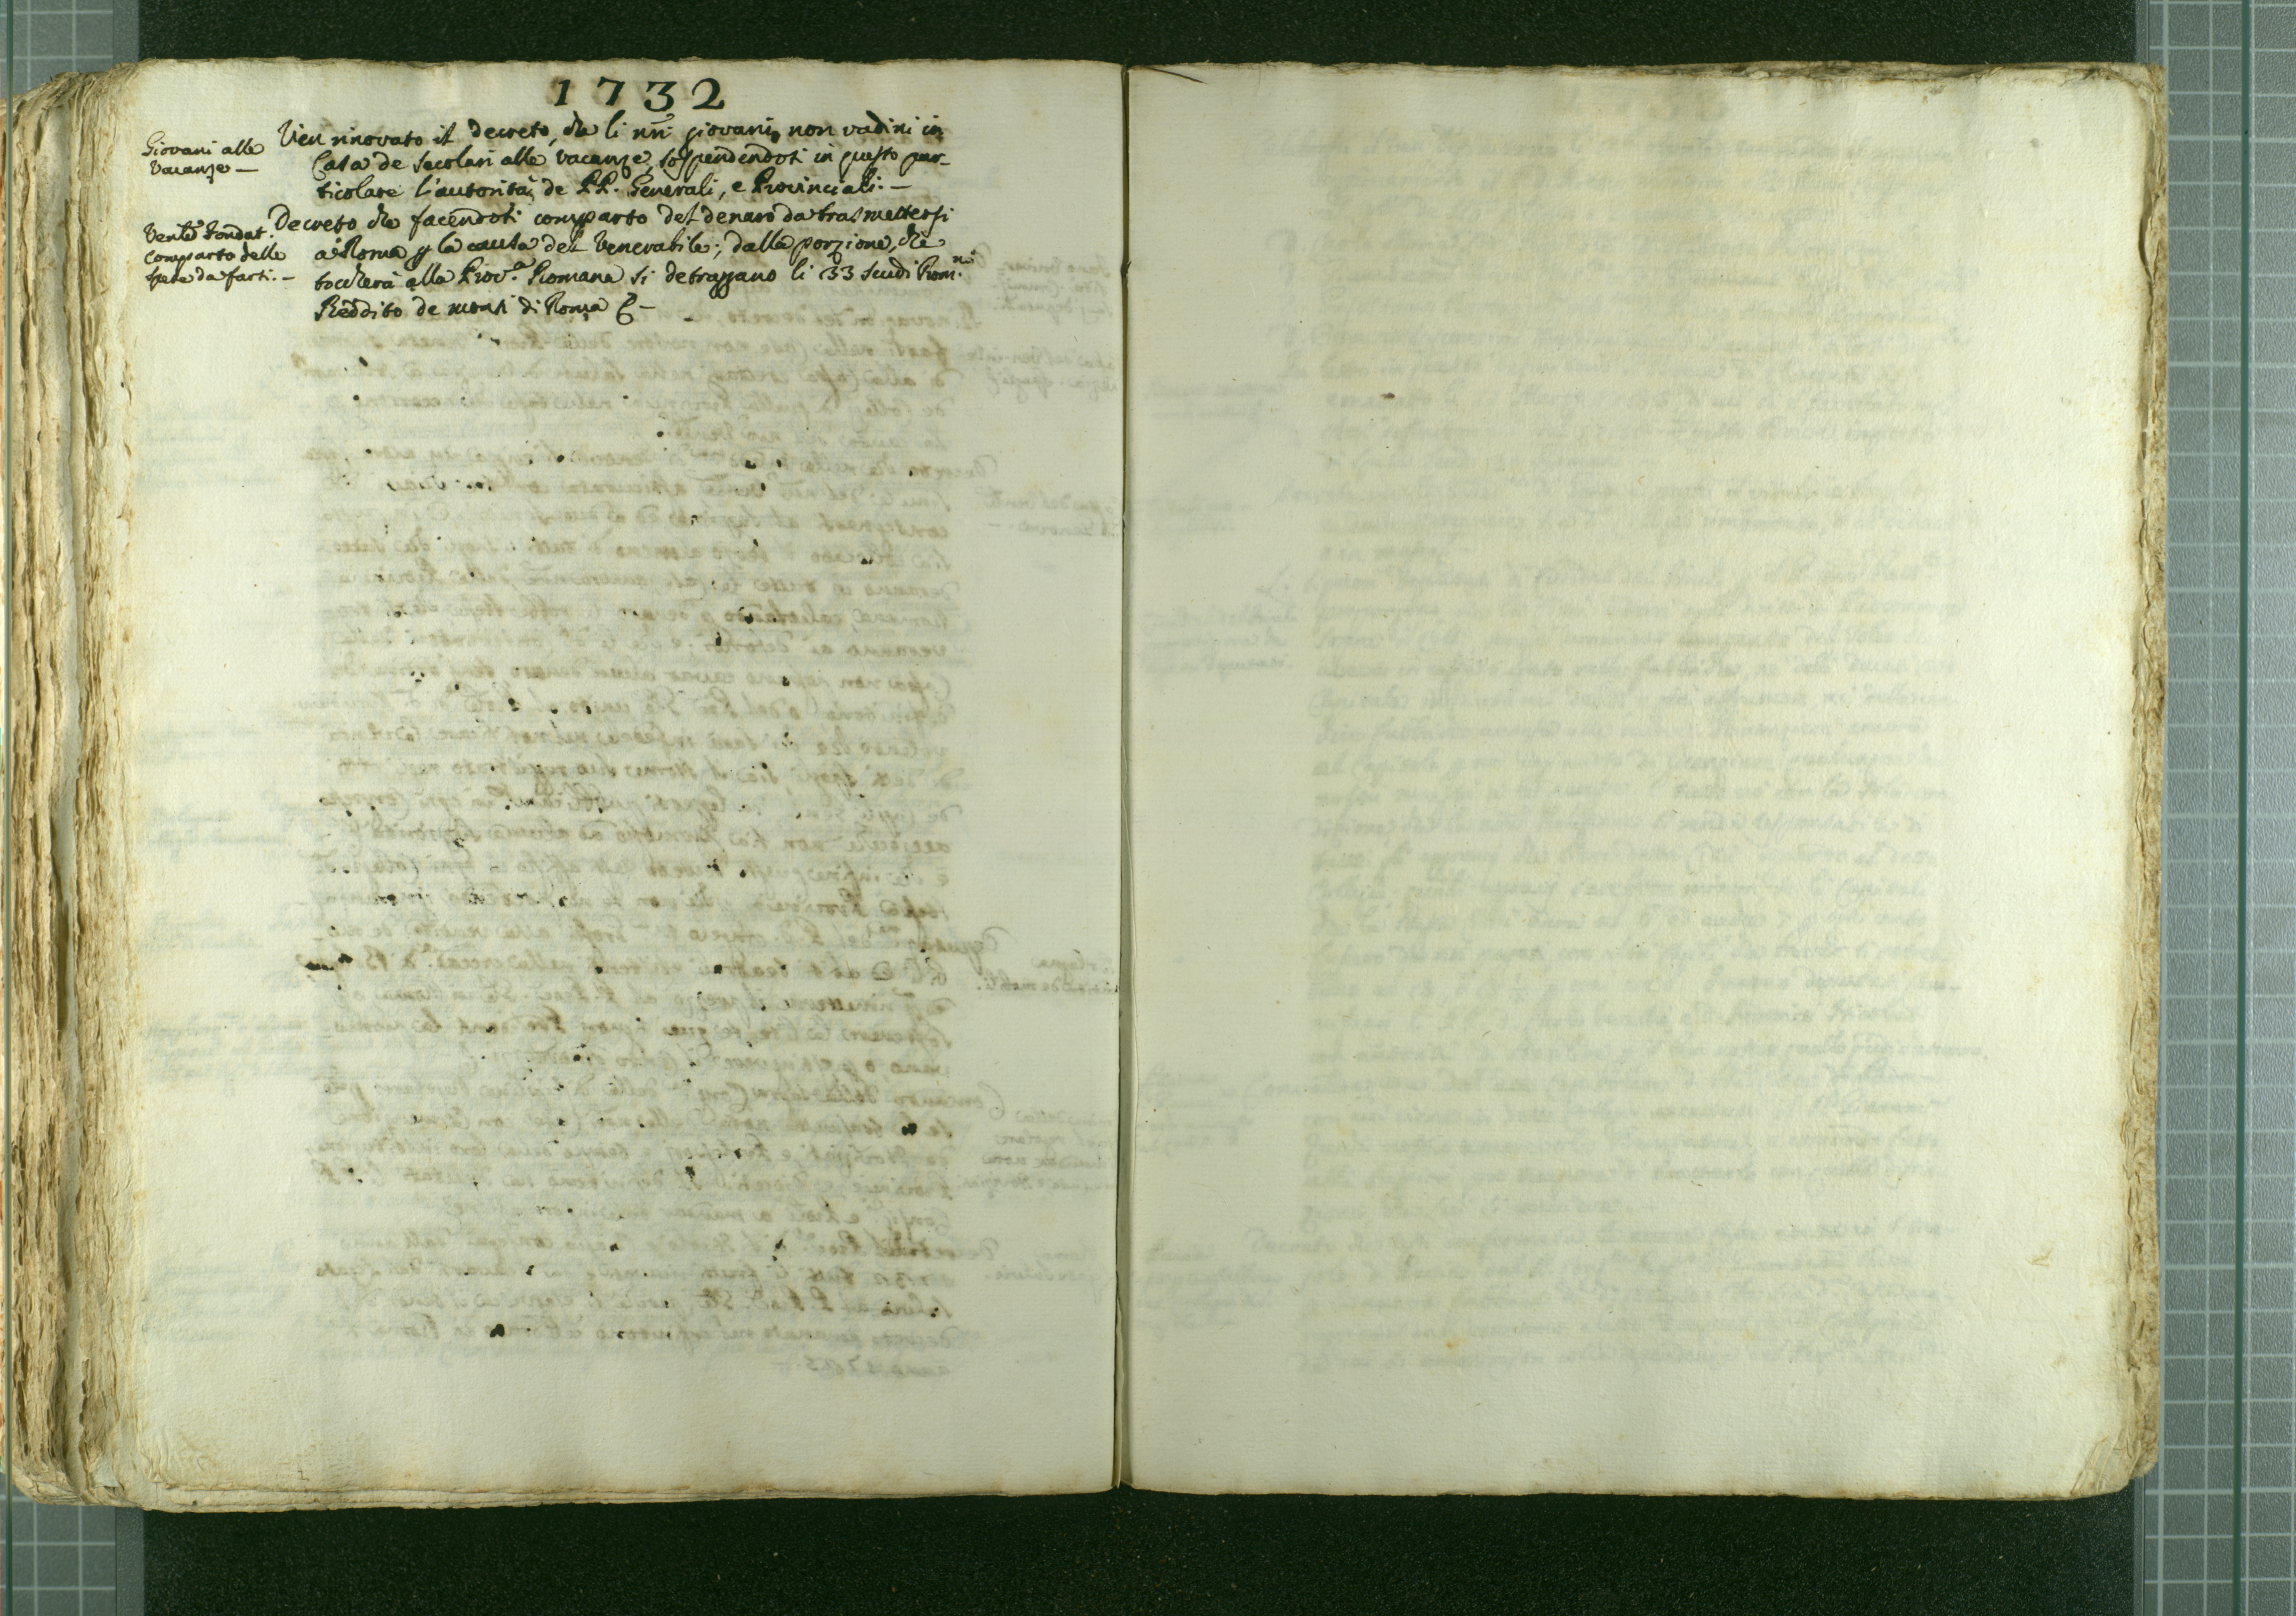 1732
Giovani alle
Vacanze —
Vien rinovato il decreto, che li nri giovani non vadini in
Casa de secolari alle vacanze, sospendendosi in questo par-
ticolare l'autorità de PP. Generali, e Provinciali. —
Vente Fondat.
comparto delle
spese da farsi. —
Decreto che facendosi comparto del denaro da trasmettersi
à Roma p la causa del Venerabile; dalla porzione, che
toccherà alla Prov.a Romana si detraggano li 33 scudi Rom.ni
Reddito de monti di Roma &c —